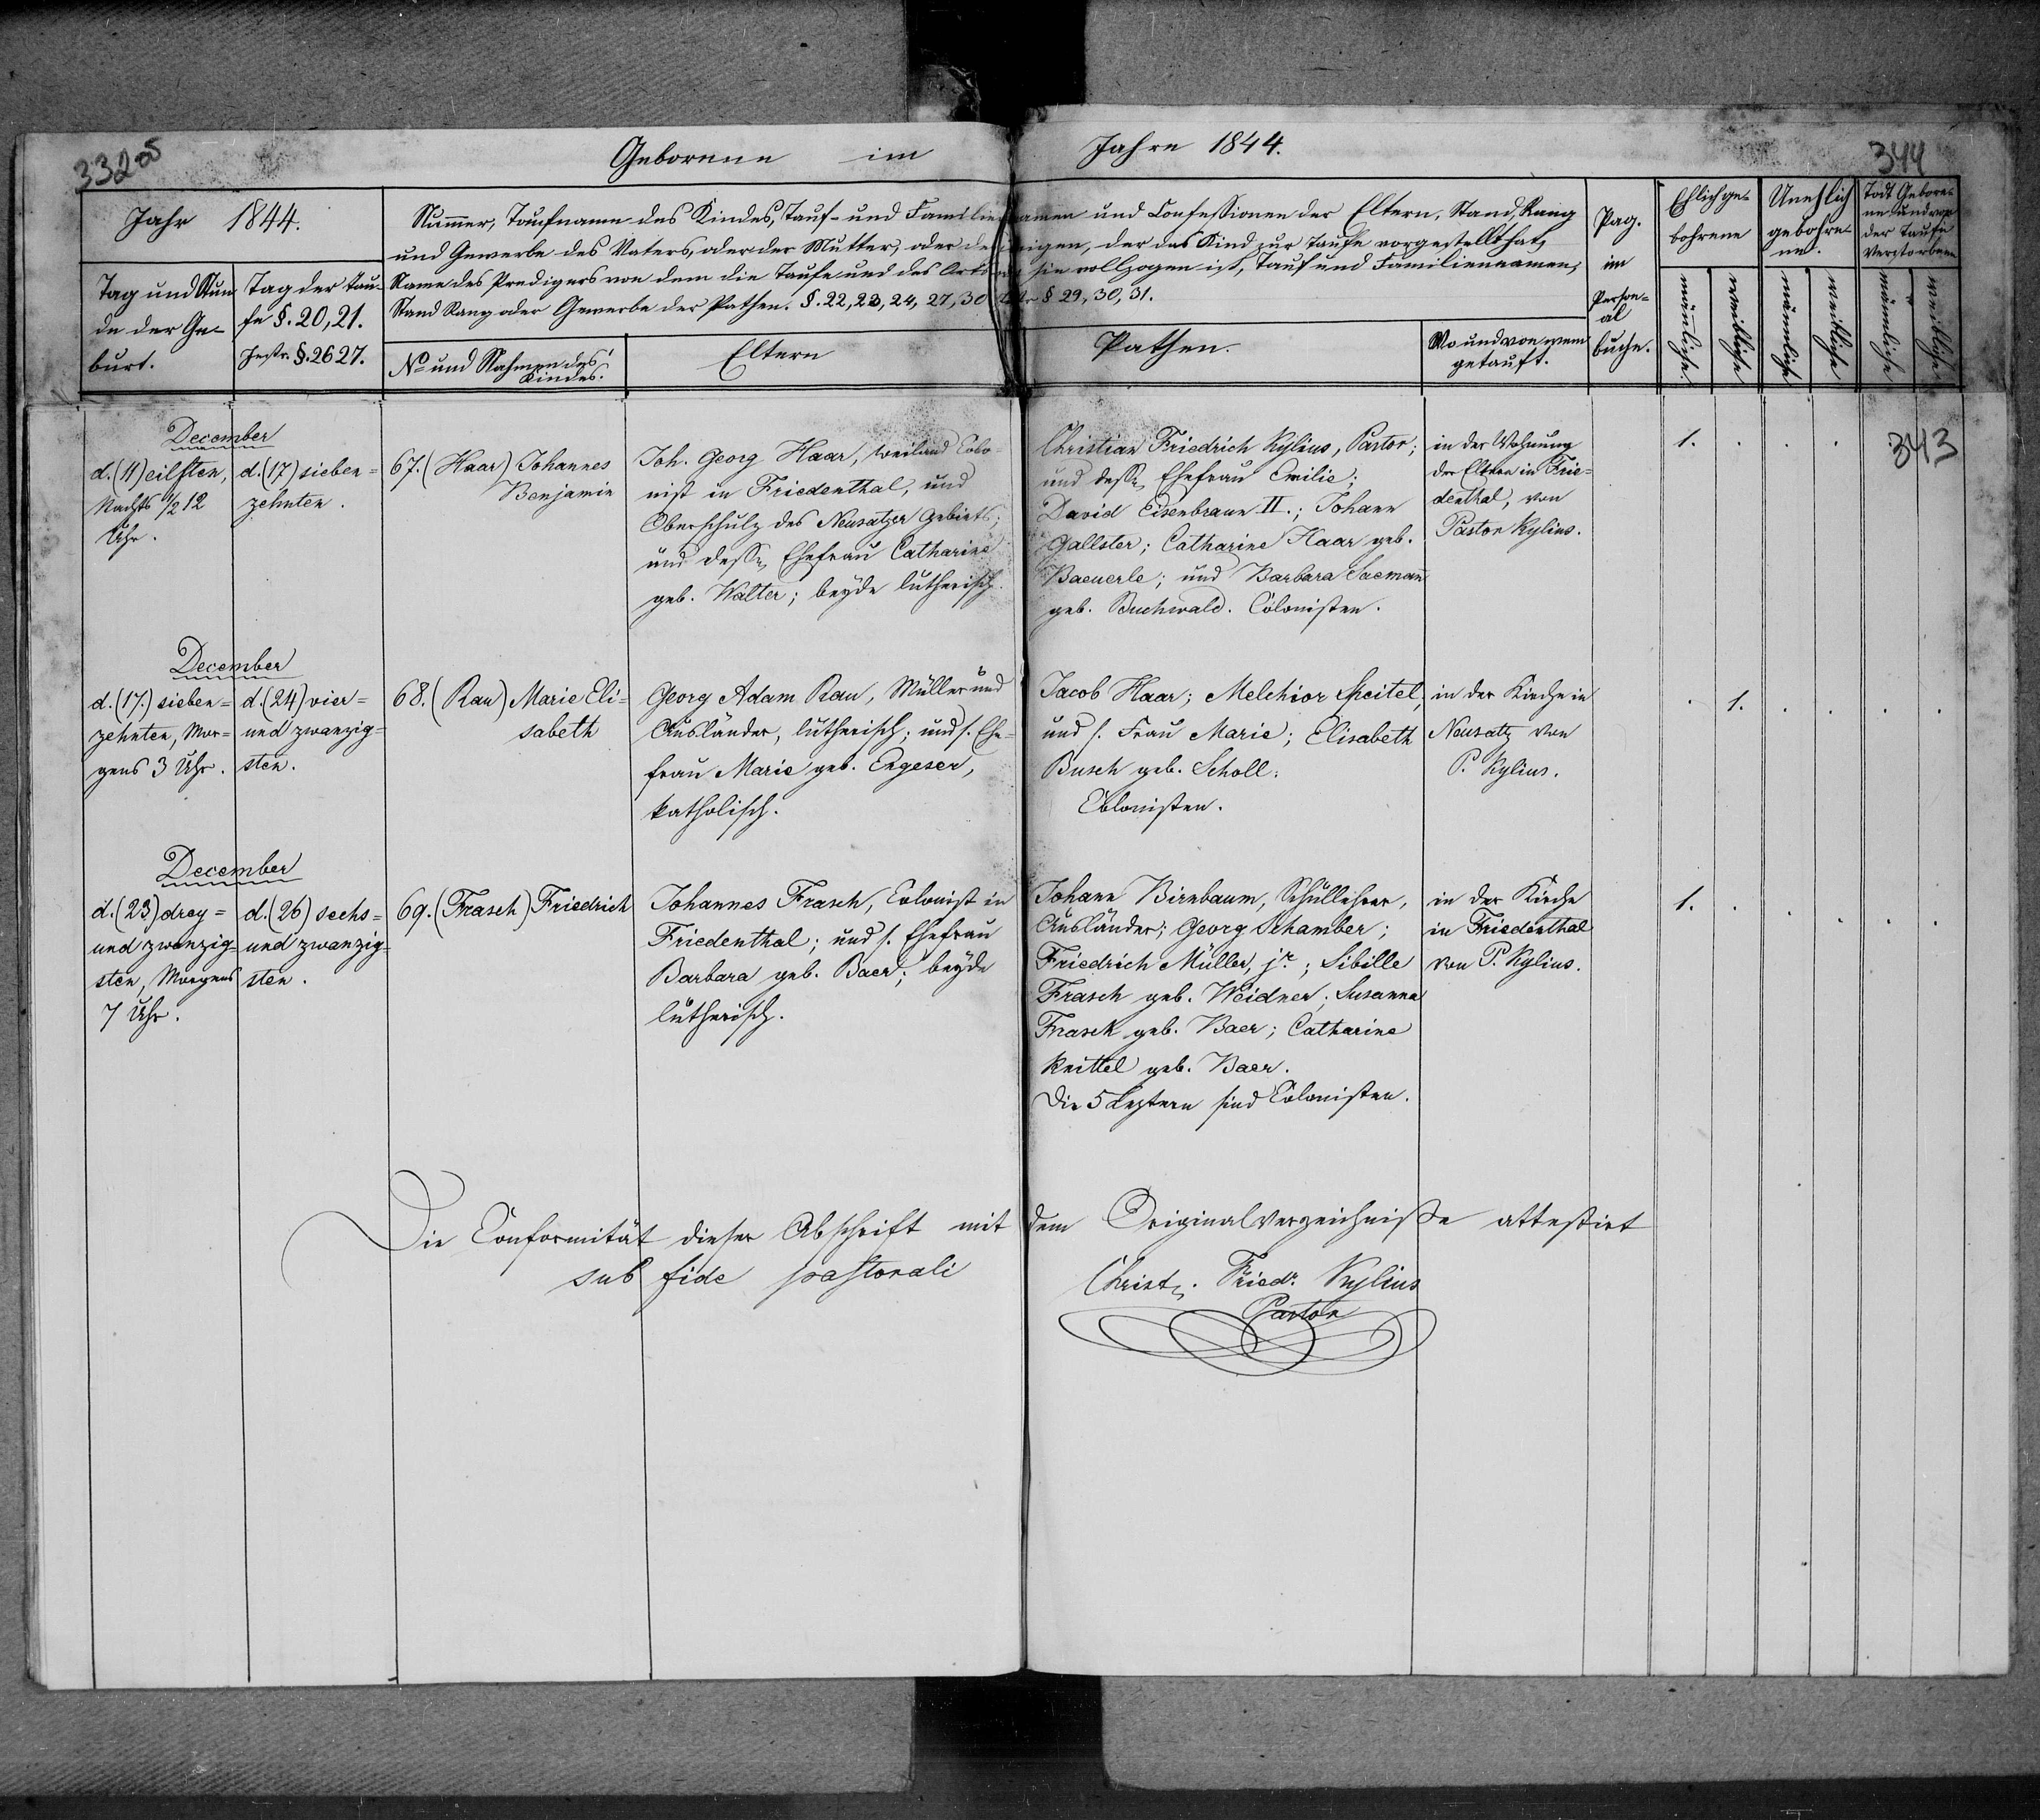 332 05
344
Geborene im Jahre 1844.
Jahr 1844.
Tag und Stun
de der Ge-
burt.
Tag der Tau-
fe §. 20, 21.
Instr. §. 26 27.
Numer, Taufname des Kindes, Tauf- und Familiennamen und Confessionen der Eltern, Stand, Rang
und Gewerbe des Vaters, oder der Mutter, oder desjenigen, der das Kind zur Taufe vorgestellt hat,
Name des Predigers von dem die Taufe und des Orts wo sie vollzogen ist, Tauf und Familiennamen,
Stand Rang oder Gewerbe der Pathen. §. 22, 23, 24, 27, 30 § 29, 30, 31.
No und Nahmen des
Kindes.
Eltern
Pathen.
Wo und von wem
getauft.
Pag.
im
Person-
al
buche.
Ehlich ge-
bohrene
Unehlich
gebohre-
ne.
Todt Gebore-
ne und vor
der Taufe
Verstorbene
männliche.
weibliche
männliche
weibliche
männliche
weibliche
December
d. (11) eilften,
Nachts 1/2 12
Uhr.
d. (17) sieben-
zehnten.
67. (Haar) Johannes
Benjamin
Joh. Georg Haar, weiland Colo-
nist in Friedenthal, und
Oberschulz des Neusatzer Gebiets;
und dessen Ehefrau Catharine
geb. Walter; beyde lutherisch.
Christian Friedrich Kylius, Pastor;
und dessen Ehefrau Emilie;
David Eisenbraun II.; Johann
Gallster; Catharine Haar geb.
Baeuerle; und Barbara Saemann
geb. Buchwald. Colonisten.
in der Wohnung
der Eltern in Frie-
denthal, von
Pastor Kylius.
1. . . .
343
December
d. (17.) sieben-
zehnten, Mor-
gens 3 Uhr.
d. (24) vier-
und zwanzig-
sten.
68. (Rau) Marie Eli-
sabeth
Georg Adam Rau, Müller und
Ausländer, lutherisch; und s. Ehe-
frau Marie geb. Engeser,
katholisch.
Jacob Haar; Melchior Speitel,
und s. Frau Marie; Elisabeth
Busch geb. Scholl.
Colonisten.
in der Kirche in
Neusatz von
P. Kylius.
. 1. . . . .
December
d. (23) drey-
und zwanzig-
sten, Morgens
7 Uhr.
d. (26) sechs-
und zwanzig-
sten.
69. (Frasch) Friedrich
Johannes Frasch, Colonist in
Friedenthal; und s. Ehefrau
Barbara geb. Baer; beyde
lutherisch.
Johann Birnbaum, Schullehrer,
Ausländer; Georg Schamber;
Friedrich Müller, jr.; Sibille
Frasch geb. Weidner; Susanna
Frasch geb. Baer; Catharine
Knittel geb. Baer.
Die 5 Leztern sind Colonisten.
in der Kirche
in Friedenthal
von P. Kylius.
1. . . . . .
Die Conformität dieser Abschrift mit dem Originalverzeichnisse attestirt
sub fide pastorali
Christ. Friedr. Kylius
Pastor